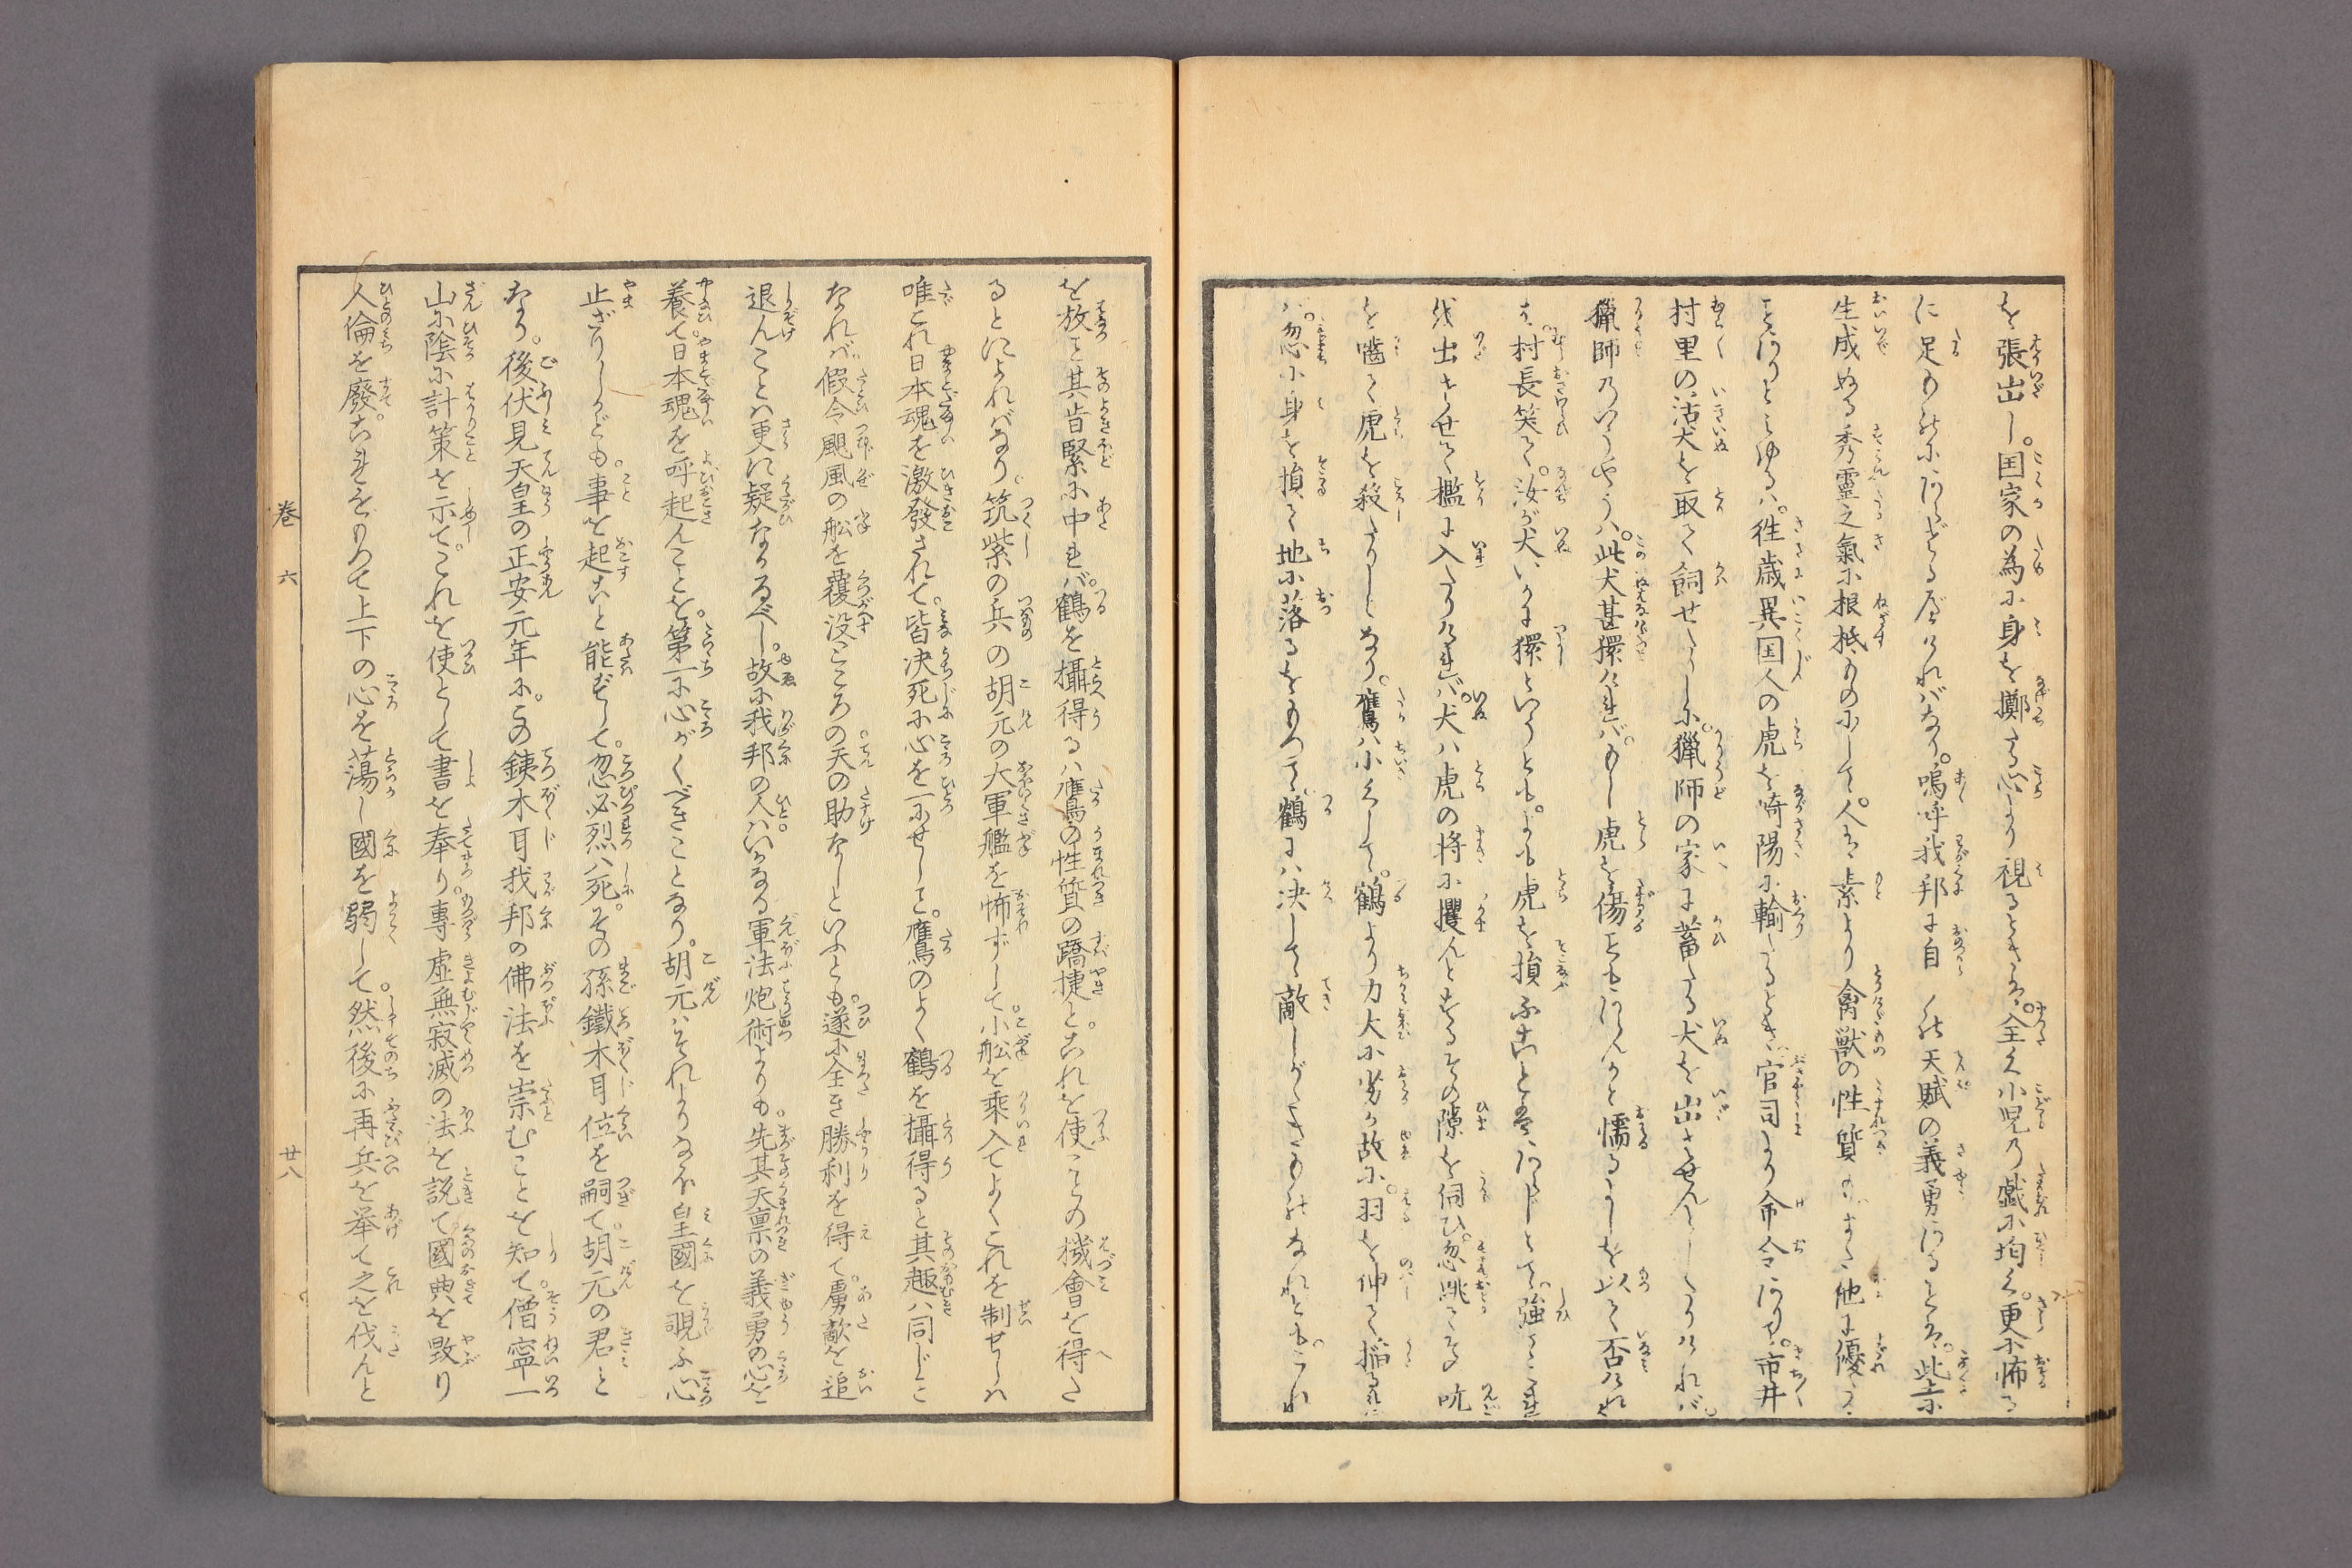 を張出し。国家の為に身を擲たる心より視るときは。全く小児の戯に均く。更に怖る
に足ものにあらざる故なればなり。嗚呼我邦に自然天賦の義勇あることは。此土に
生成ぬる秀霊之氣に根柢ものにして。人は素より禽獣の性質のまた他に優たる
ことありとみゆるは。徃歳異国人の虎を﨑陽に輸したるとき。官司より命令ありて。市井
村里の活犬を取て飼せたりしに。猟師の家に蓄たる犬を出させんとしたりければ。
猟師のいうやうは。此犬甚獧ければ。もし虎を傷ともあらんかと懦るゝを以て否ければ
は。村長笑て。汝が犬いかに獧といふとも。よも虎を損ふことはあらじとて。強てこれ
伐出させて檻に入たりければ。犬ハ虎の将に攫んとするその隙を伺ひ。忽跳てその吭
を噛て虎を殺たりしとなり。鷹ハ小くして。鶴より力大に劣るが故に。羽を伸て搦るれ
バ。忽に身を損て地に落るをもつて。鶴にハ決して敵しがたきものなれども。これ
を放と其肯綮に中れバ。鶴を攝得るハ鷹の性質の蹻捷と。これを使ことの機會を得た
るとによればなり。筑紫の兵の胡元の大軍艦を怖ずして。小舩を乗入てよくこれを制せしハ
唯これ日本魂を激發されて。皆決死に心を一にせしこと。鷹のよく鶴を攝得ると其趣ハ同じこと
なれバ。假令颶風の舩を覆没ところの。天の助なしといふとも。遂に全き勝利を得て。虜敵を追
退んことハ更に疑なかるべし。故に我邦の人ハ。いかなる軍法炮術よりも。先其天禀の義勇の心を
養て。日本魂を呼起んことを。第一に心がくべきことなり。胡元ハそれよりなほ皇國を覗ふ心
止ざりしかども。事を起こと能ずして。忽必烈ハ死。その孫鐵木耳位を嗣て。胡元の君と
なり。後伏見天皇の正安元年に。その銕木耳我邦の佛法を崇むことを知て。僧寧一
山に陰に計策を示て。これを使として書を奉り。專虛無寂滅の法を説て國典を毀り
人倫を廢。これをもつて上下の心を蕩し國を弱して。然後に再兵を挙て之を伐んと
巻 六 廿八